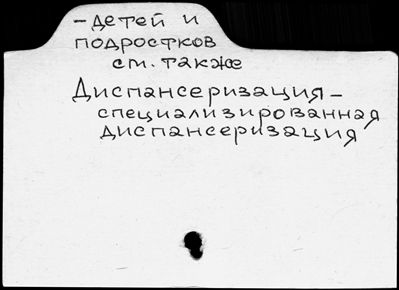 - детей и
подростков
см. также
Диспансеризация -
специализированная
диспансеризация